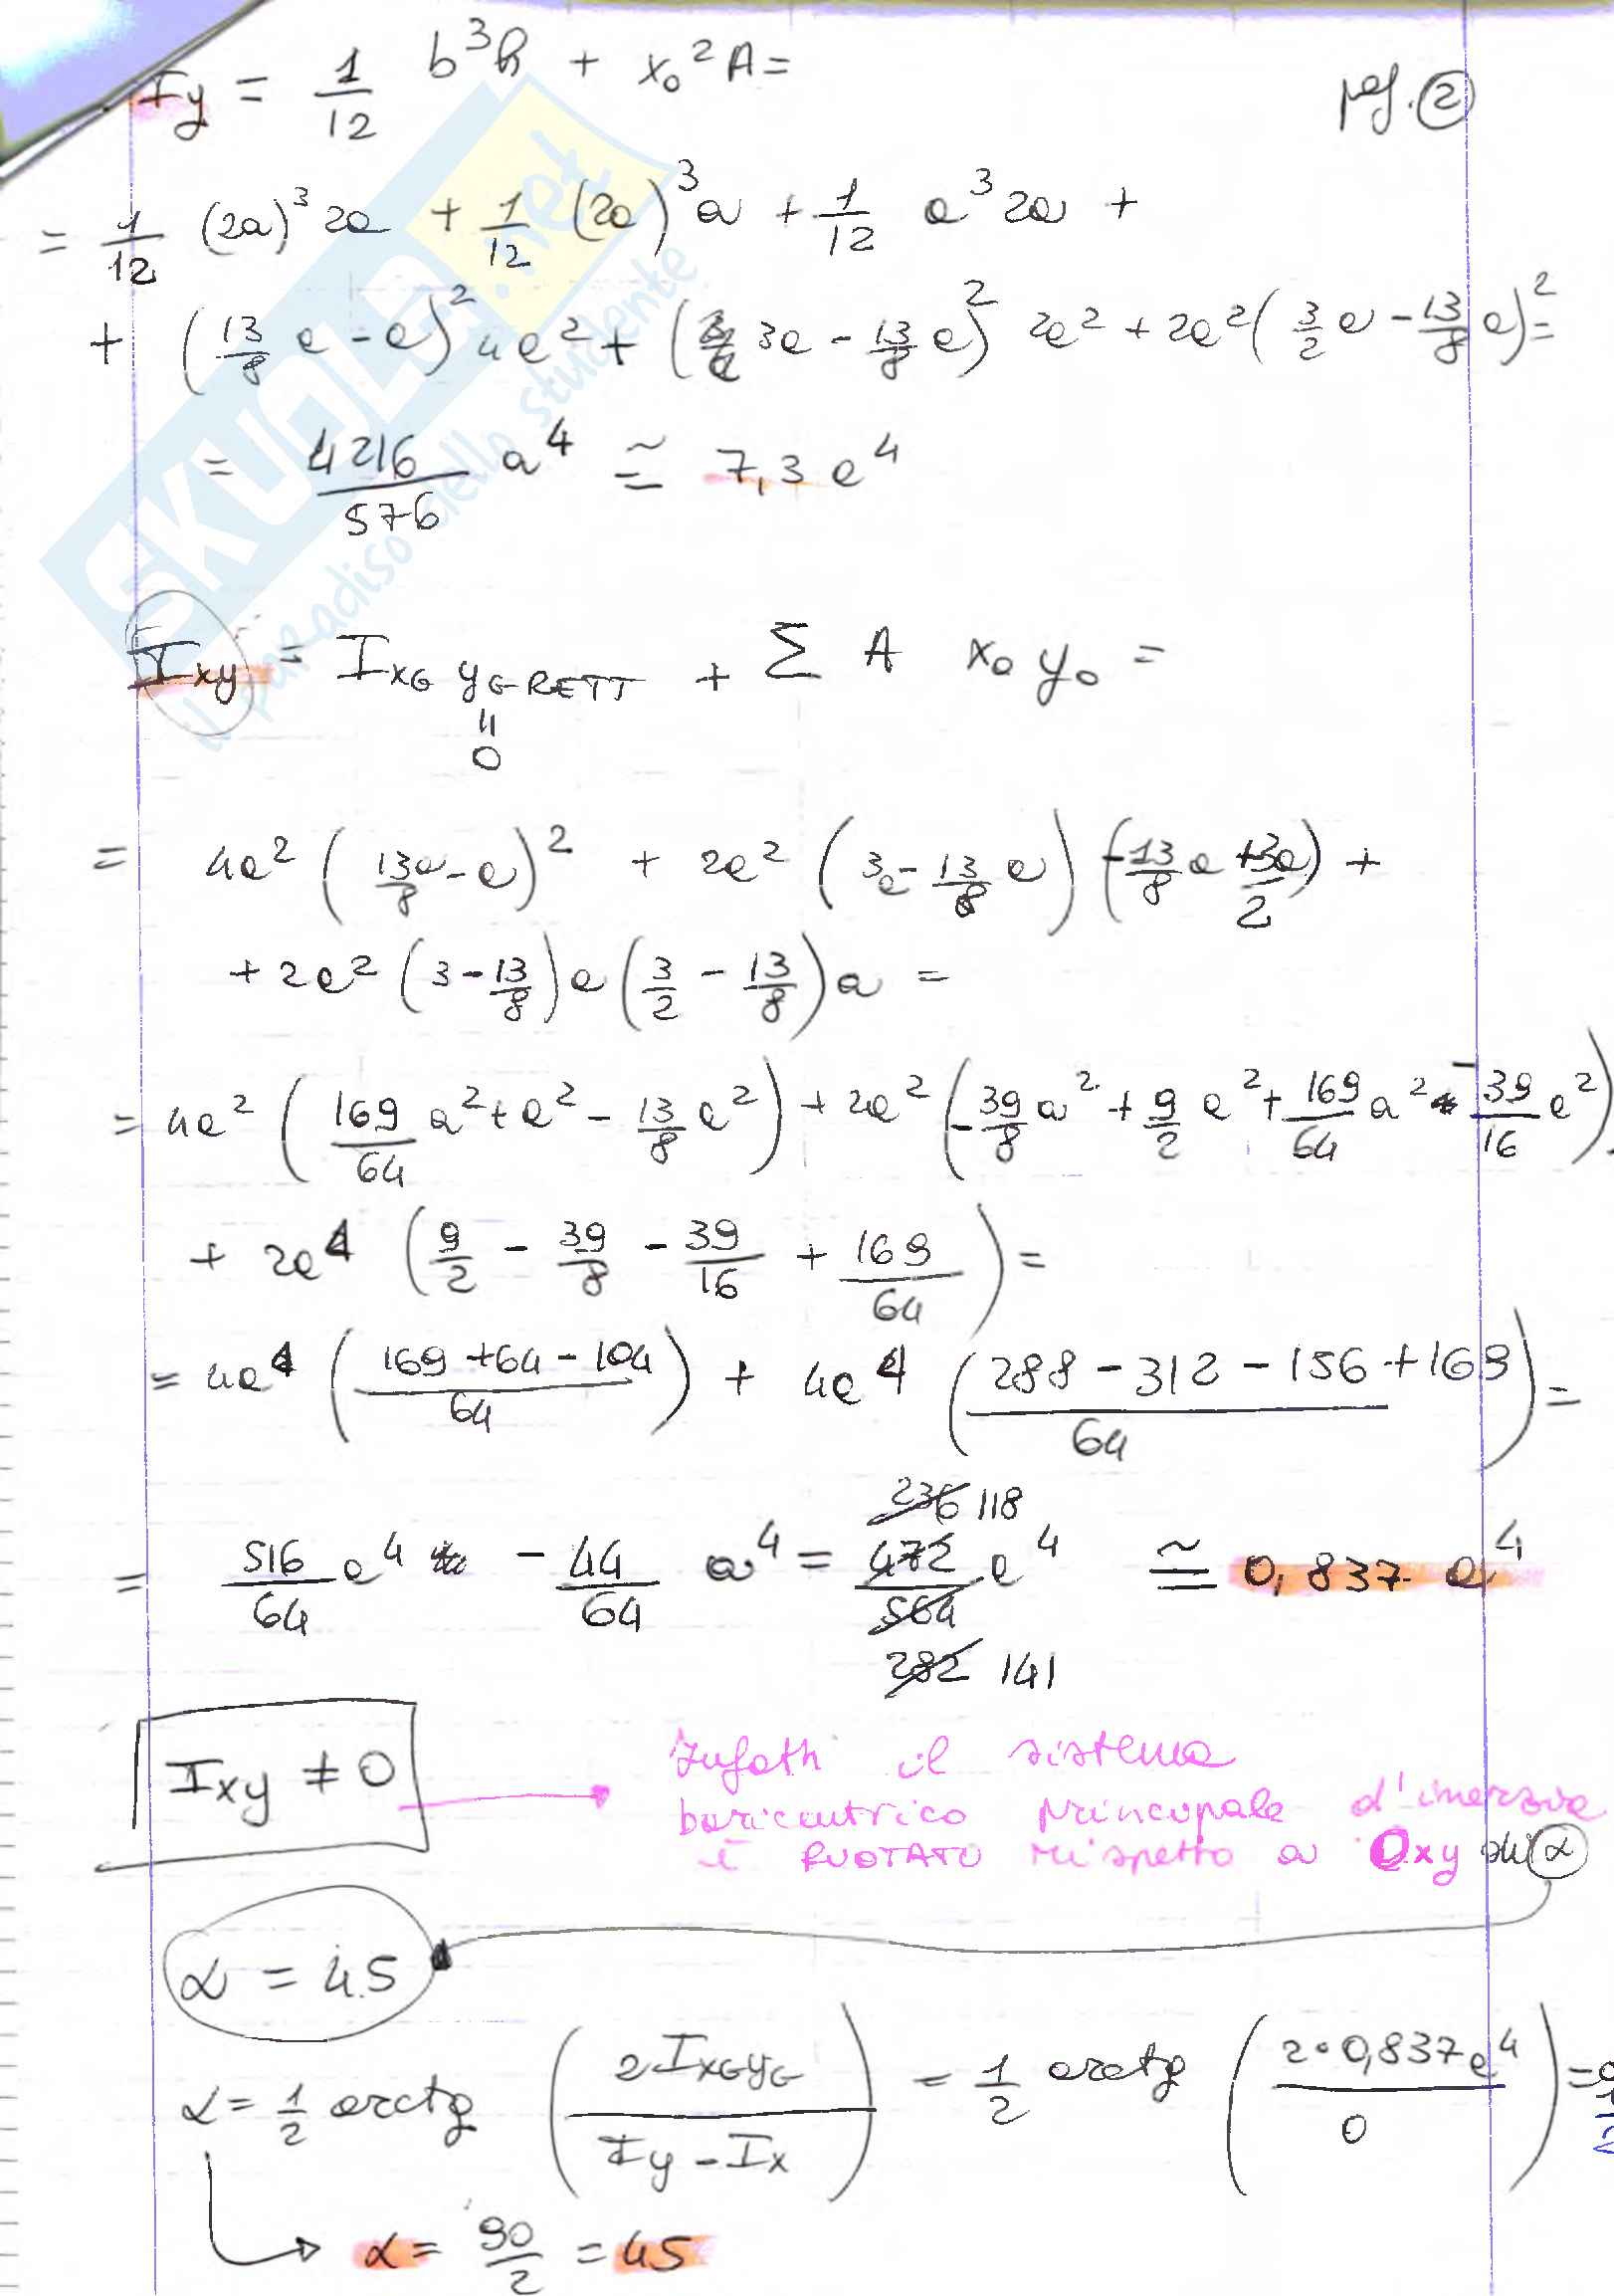 Iy = 1/12 b³h + x₀²A =
pag. 2
= 1/12 (2a)³ 2a + 1/12 (2a)³ a + 1/12 a³ 2a +
+ (13/8 a - a)² 4a² + (3a - 13/8 a)² 2a² + 2a² (3/2 a - 13/8 a)² =
= 4216/576 a⁴ ≅ 7,3 a⁴
Ixy = I xG yG RETT + Σ A x₀ y₀ =
=
0
= 4a² (13a/8 - a)² + 2a² (3a - 13/8 a) (-13/8 a + 3a/2) +
+ 2a² (3 - 13/8) a (3/2 - 13/8) a =
= 4a² (169/64 a² + a² - 13/8 a²) + 2a² (-39/8 a² + 9/2 a² + 169/64 a² - 39/16 a²)
+ 2a⁴ (9/2 - 39/8 - 39/16 + 169/64) =
= 4a⁴ ((169 + 64 - 104)/64) + 4a⁴ ((288 - 312 - 156 + 169)/64) =
236 118
= 516/64 a⁴ - 44/64 a⁴ = 472/564 a⁴ ≅ 0,837 a⁴
282 141
Ixy ≠ 0
Infatti il sistema
baricentrico principale d'inerzia
è RUOTATO rispetto a Oxy di α
α = 45
α = 1/2 arctg (2 I xG yG / (Iy - Ix)) = 1/2 arctg (2·0,837 a⁴ / 0) =
α = 90/2 = 45
SKUOLA.net
il paradiso dello studente